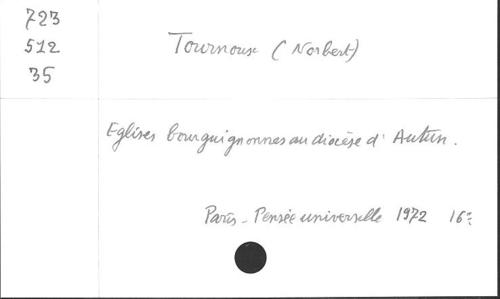 723
512
35
Tournoux (Norbert)
Eglises bourguignonnes au diocèse d'Autun.
Paris - Pensée universelle 1972 16°